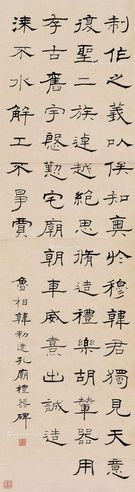 制作之義以俟知奧於穆韓君獨見天意
復聖二族逴越絕思脩造禮樂胡輦器用
存古舊宇殷懃宅廟朝車威熹出誠造
涞不水解工不爭賈
魯相韓勑造孔廟禮器碑